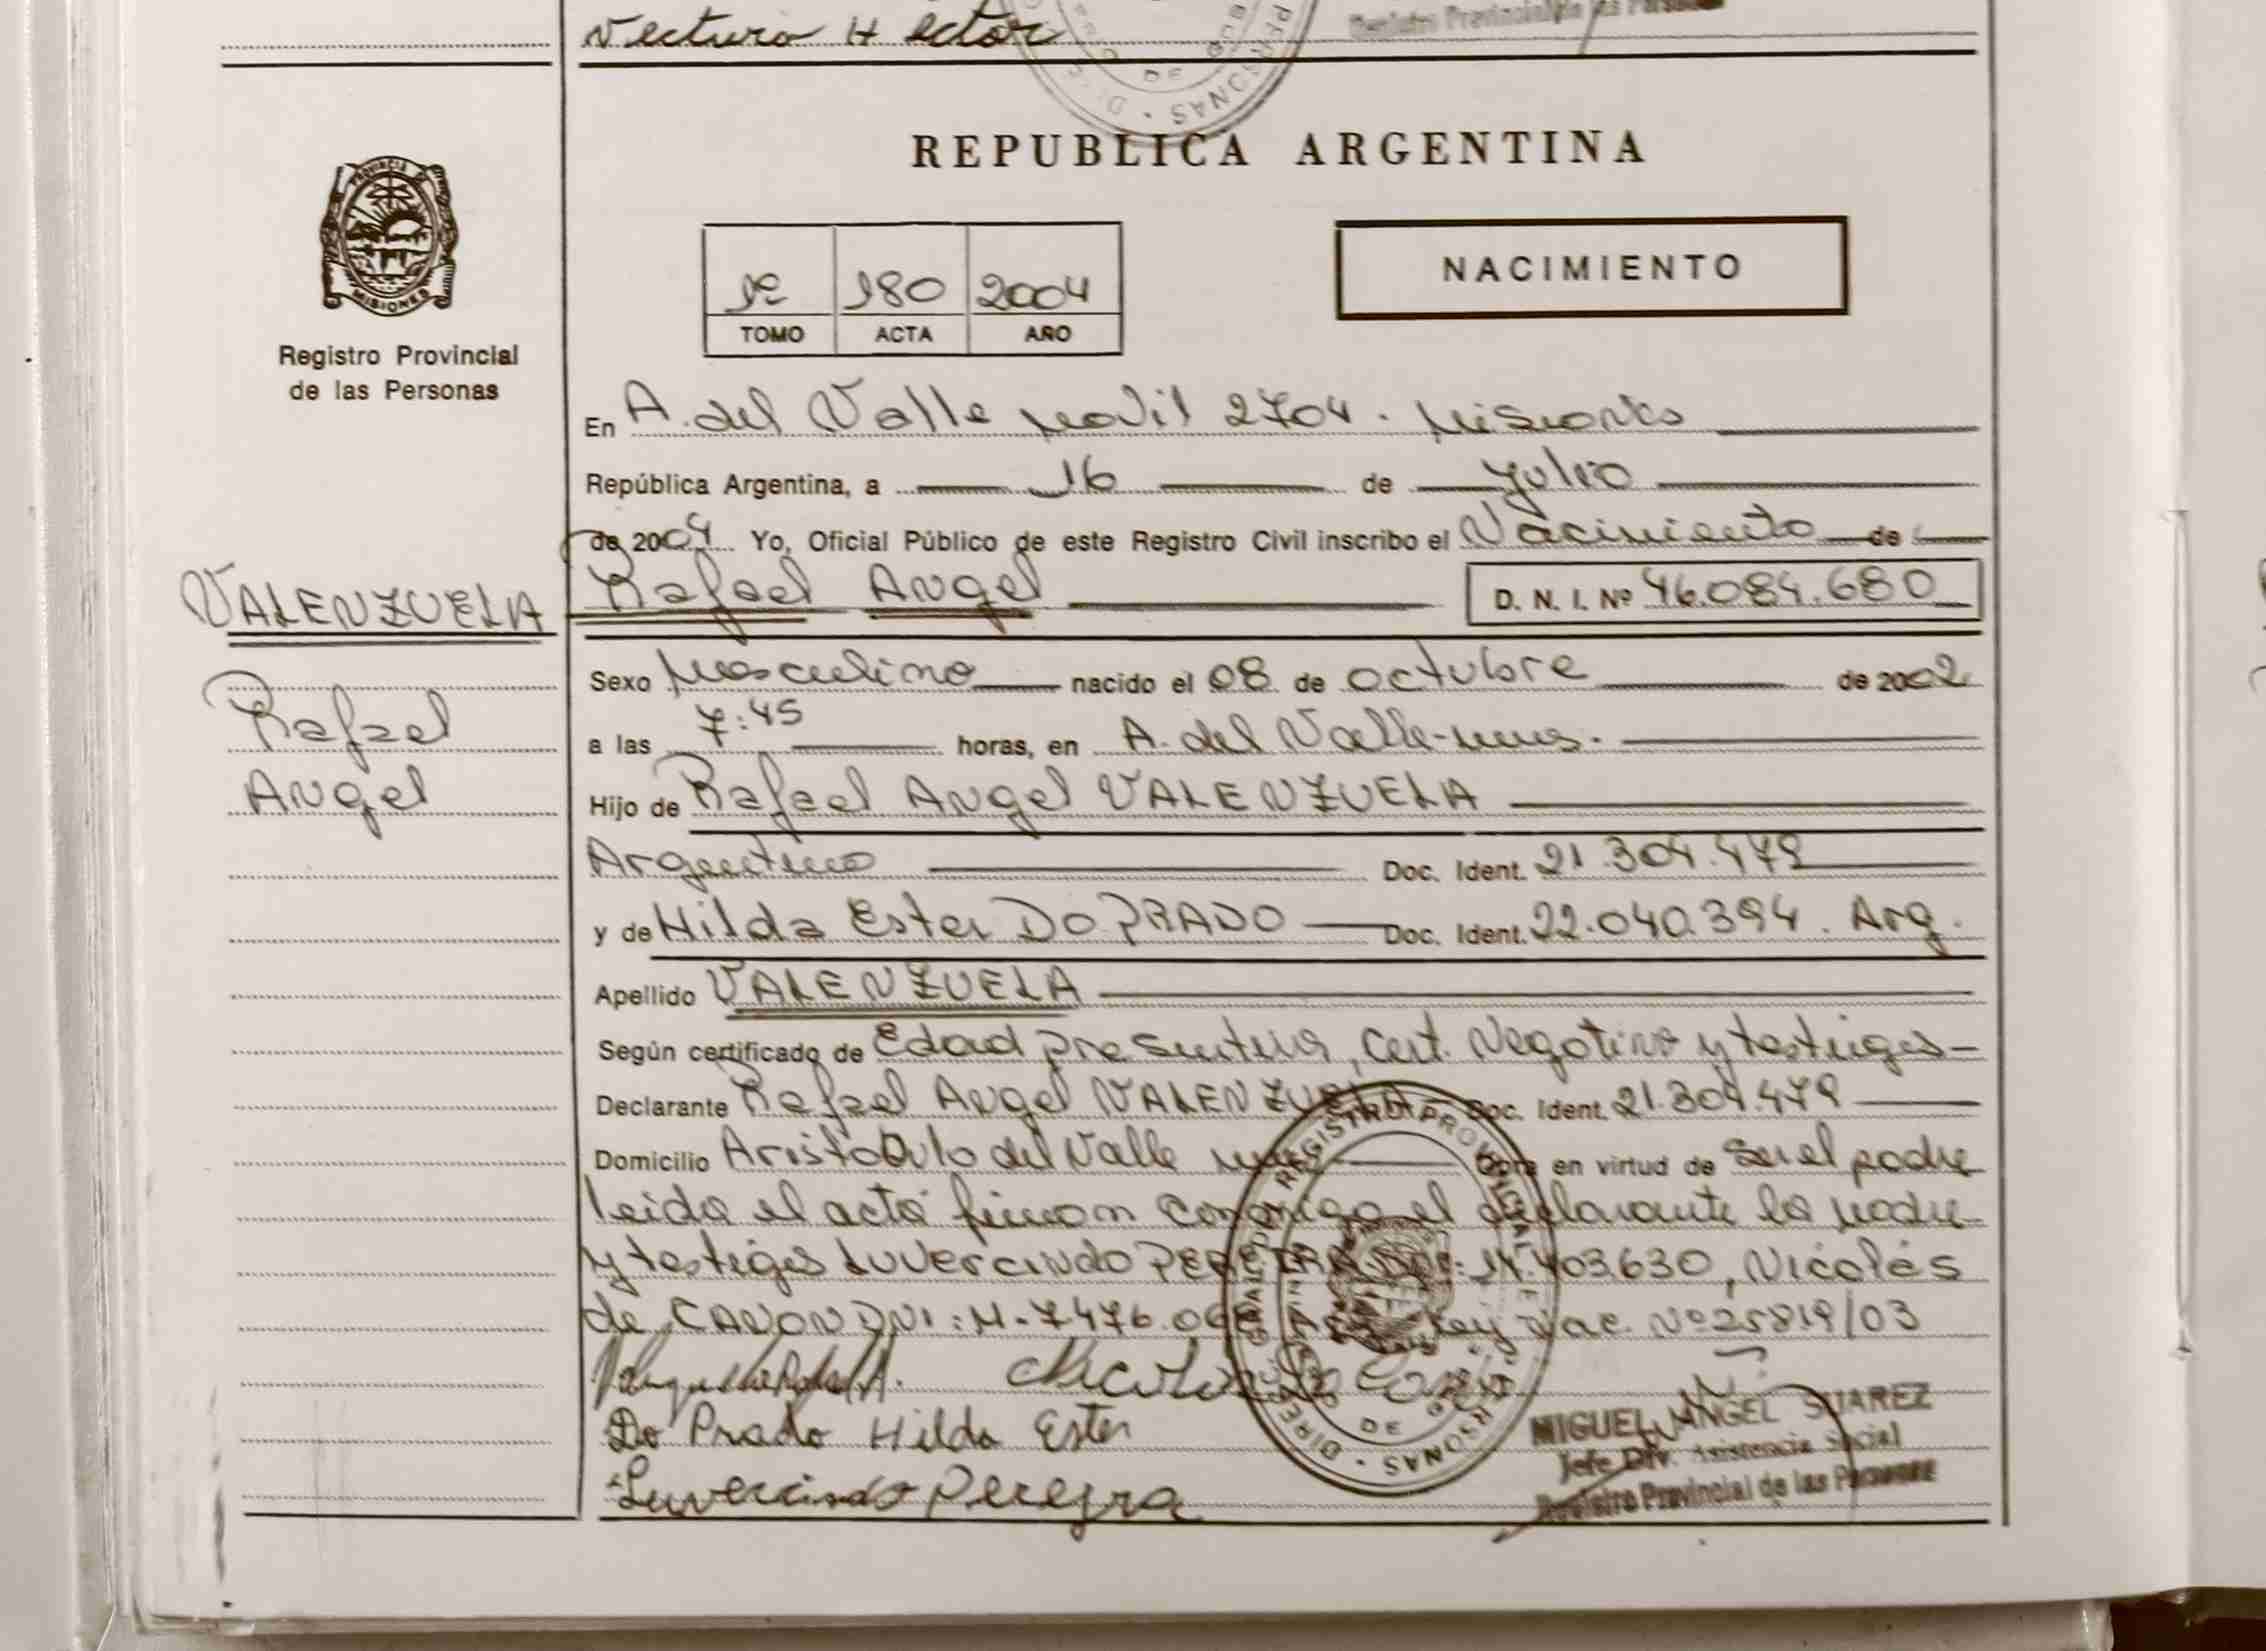 Hector
Registro Provincial de las Personas
PERSONAS
REPUBLICA ARGENTINA
PROVINCIA DE
MISIONES
Registro Provincial
de las Personas
1º 180 2004
TOMO ACTA AÑO
NACIMIENTO
En A. del Valle Movil 2704 - Misiones
República Argentina, a 16 de Julio
de 2004 Yo, Oficial Público de este Registro Civil inscribo el Nacimiento de
VALENZUELA Rafael Angel D. N. I. Nº 46.084.680
Rafael
Angel
Sexo Masculino nacido el 08 de octubre de 2002
a las 7:45 horas, en A. del Valle-Mnes.
Hijo de Rafael Angel VALENZUELA
Argentino Doc. Ident. 21.304.479
y de Hilda Ester DO PRADO Doc. Ident. 22.040.394. Arg.
Apellido VALENZUELA
Según certificado de Edad presuntiva, Cert. Negativo y testigos-
Declarante Rafael Angel VALENZUELA Doc. Ident. 21.304.479
Domicilio Aristobulo del Valle Mnes Obra en virtud de Ser el padre
leida el acta firman conmigo el declarante la madre
y testigos Luvercindo PEREYRA 403.630, Nicolás
de CANON DNI: M-7476. Ley Nac. Nº 25819/03
Nicolas
Do Prado Hilda Ester
Luvercindo Pereyra
MIGUEL ANGEL SUAREZ
Jefe Div. Asistencia Social
Registro Provincial de las Personas